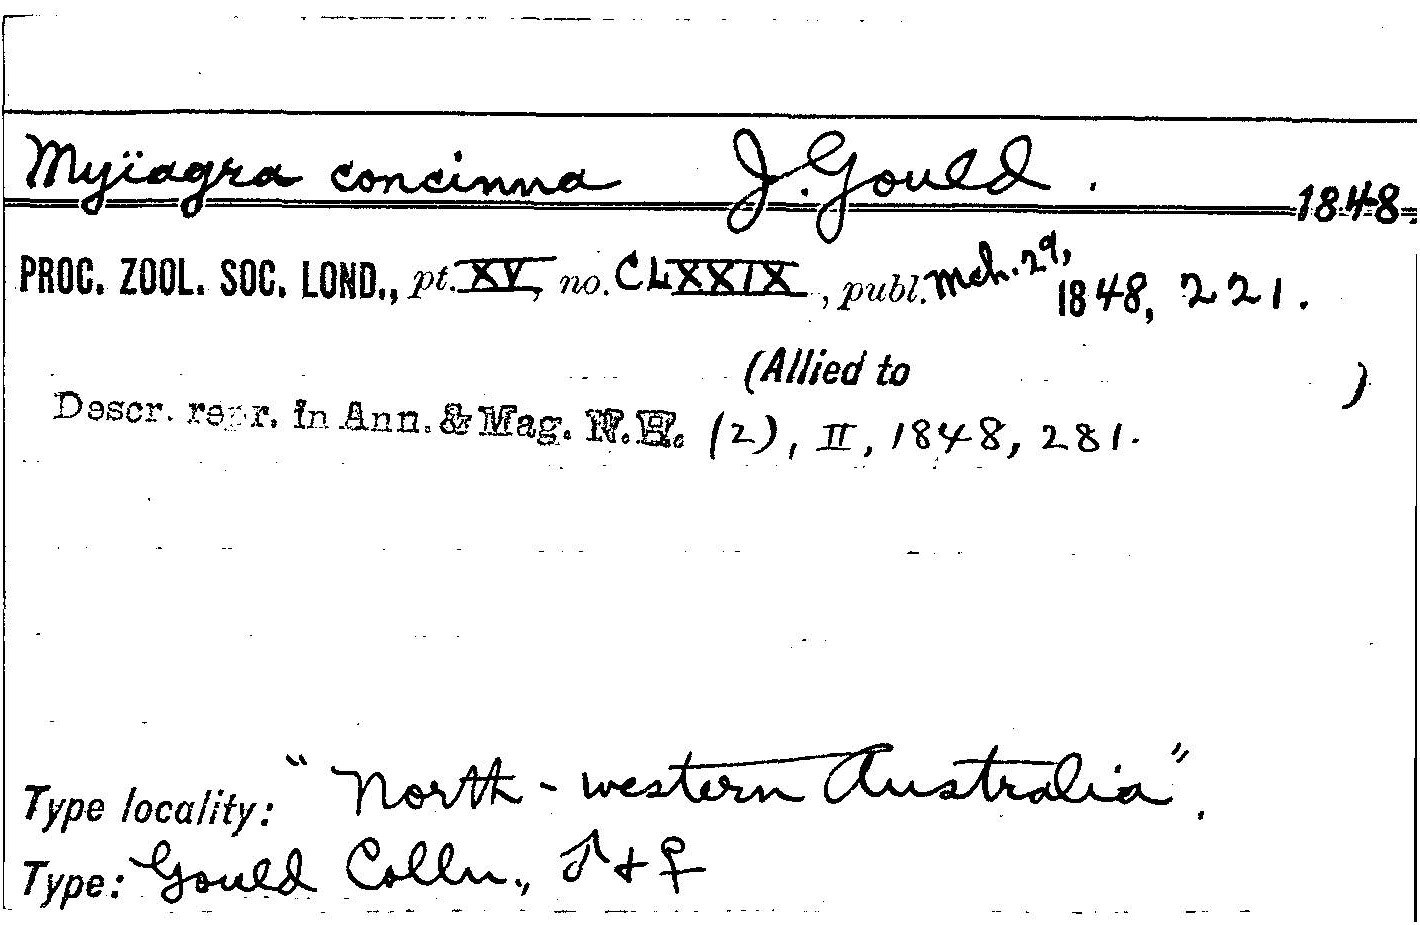 Myïagra concinna J. Gould. 1848.
PROC. ZOOL. SOC. LOND., pt. XV, no. CLXXIX, publ. Mch. 29, 1848, 221.
(Allied to )
Descr. repr. in Ann. & Mag. N.H. (2), II, 1848, 281.
Type locality: "North-western Australia".
Type: Gould Colln., ♂ + ♀